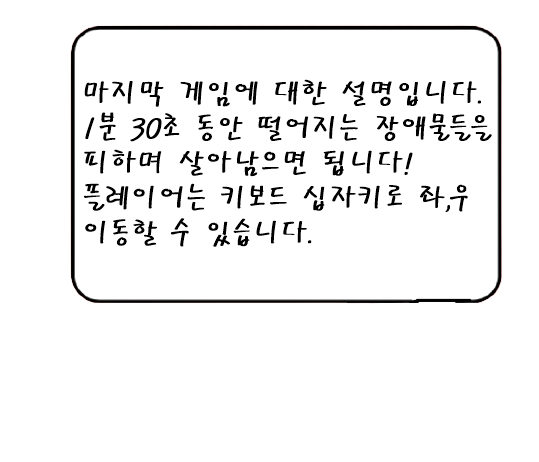 마지막 게임에 대한 설명입니다.
1분 30초 동안 떨어지는 장애물들을
피하며 살아남으면 됩니다!
플레이어는 키보드 십자키로 좌,우
이동할 수 있습니다.